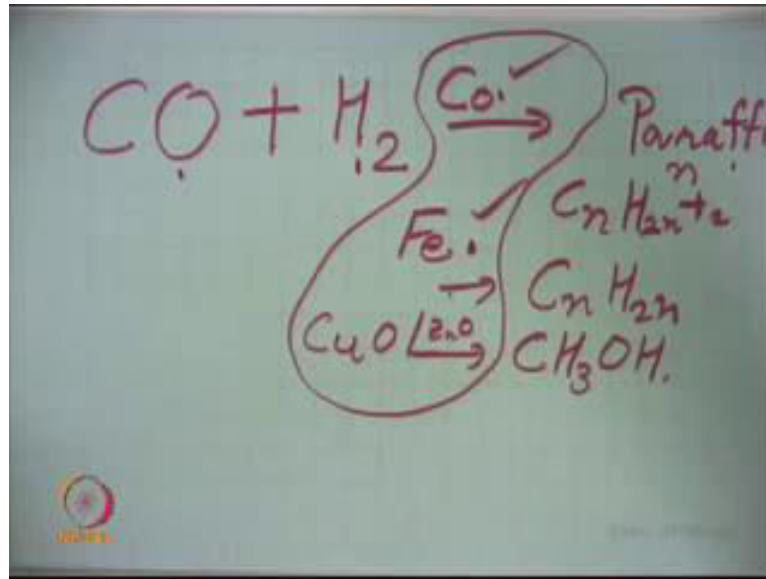 CO + H2 Co. → Paraffi
n
CnH2n+2
Fe. → CnH2n
CuO/ZnO → CH3OH.